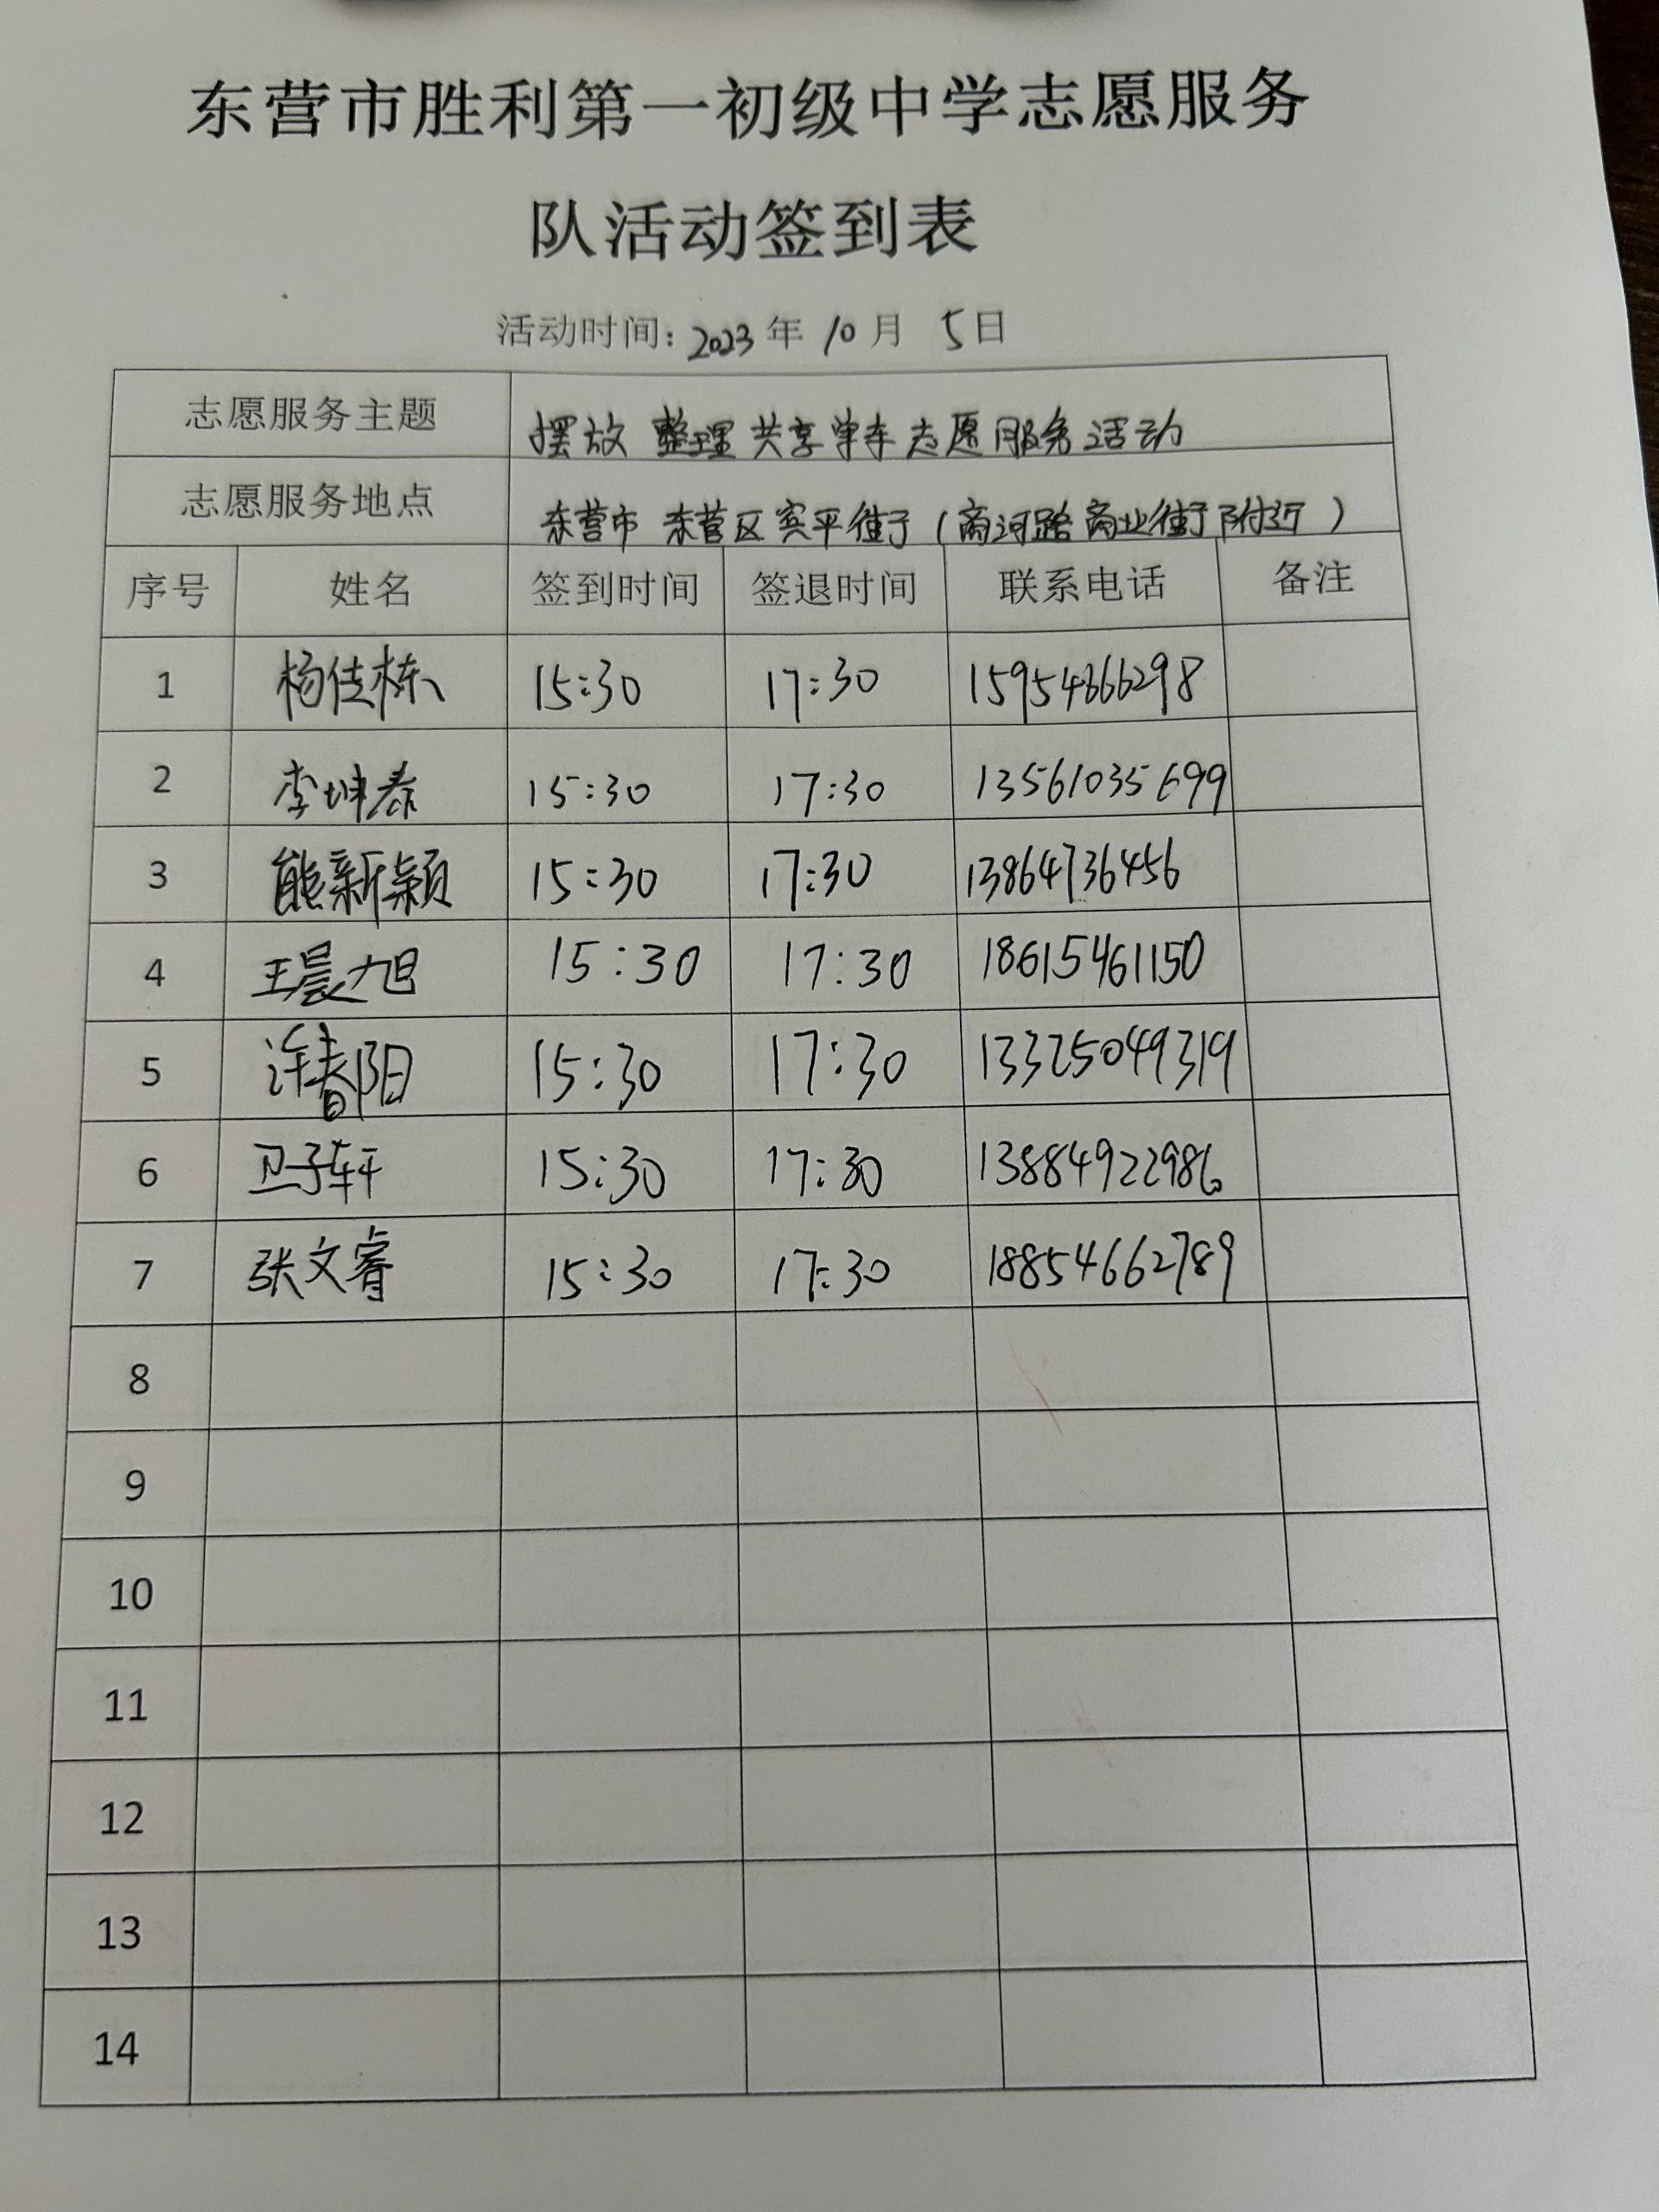 东营市胜利第一初级中学志愿服务
队活动签到表
活动时间：2023年10月5日
志愿服务主题 摆放 整理共享单车志愿服务活动
志愿服务地点 东营市 东营区宾平街（商河路商业街附近）
序号 姓名 签到时间 签退时间 联系电话 备注
1 杨佳栋 15:30 17:30 15954666298
2 李坤泰 15:30 17:30 13561035699
3 熊新颖 15:30 17:30 13864736456
4 王晨旭 15:30 17:30 18615461150
5 许春阳 15:30 17:30 13325049319
6 卫子轩 15:30 17:30 13884922986
7 张文睿 15:30 17:30 18854662789
8
9
10
11
12
13
14